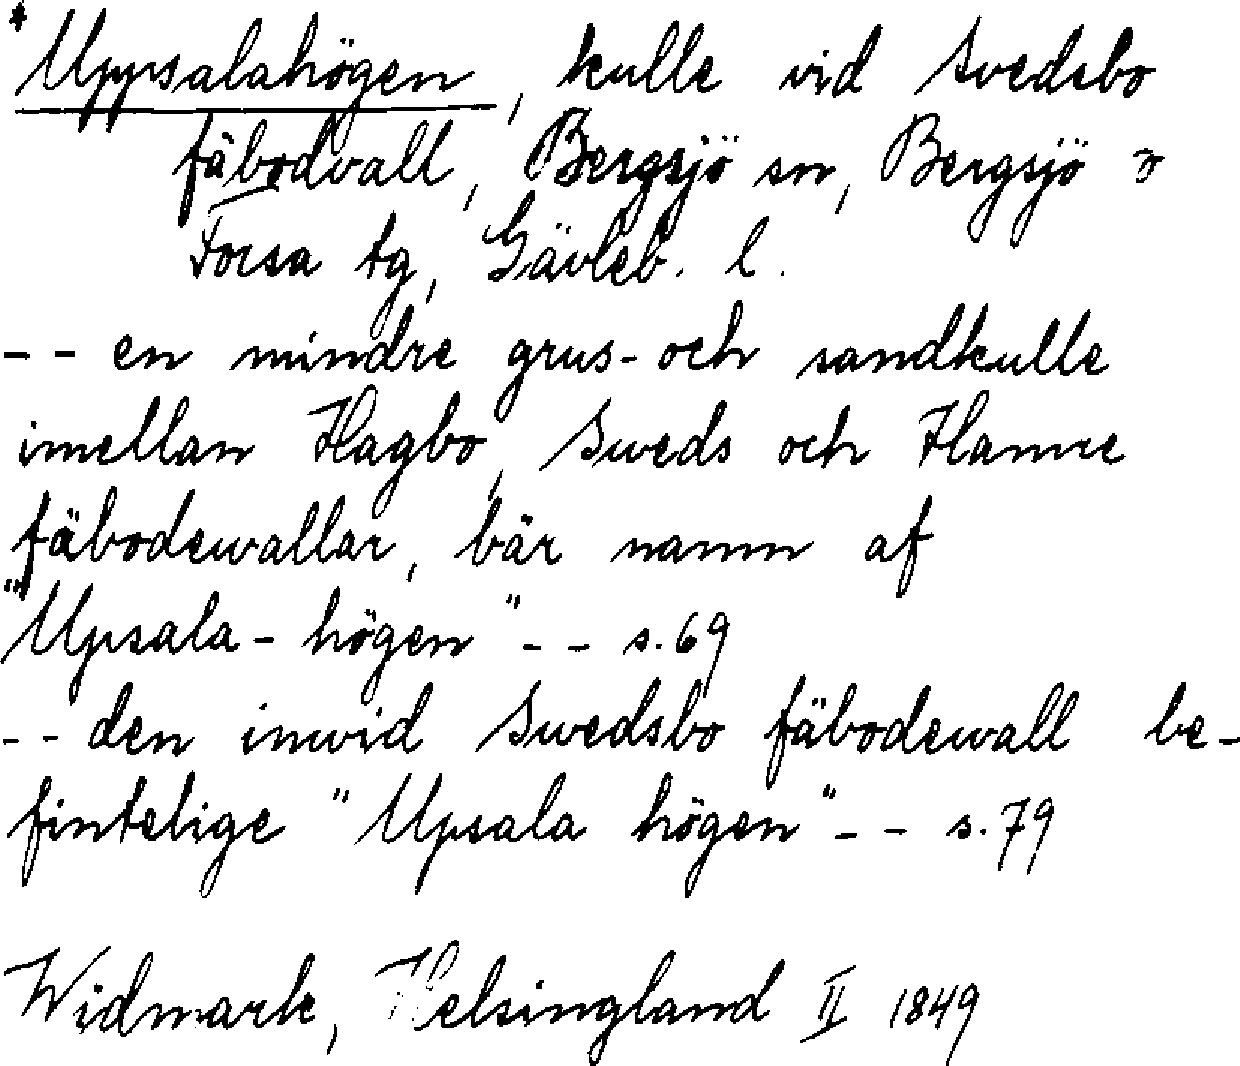 *Uppsalahögen, kulle vid Svedsbo
fäbodvall, Bergsjö sn, Bergsjö o
Forsa tg, Gävleb. l.
-- en mindre grus- och sandkulle
imellan Hagbo, Sweds och Hamre
fäbodewallar, bär namn af
"Upsala-högen" -- s. 69
-- den inwid Swedsbo fäbodewall be-
fintelige "Upsala högen" -- s. 79
Widmark, Helsingland II 1849